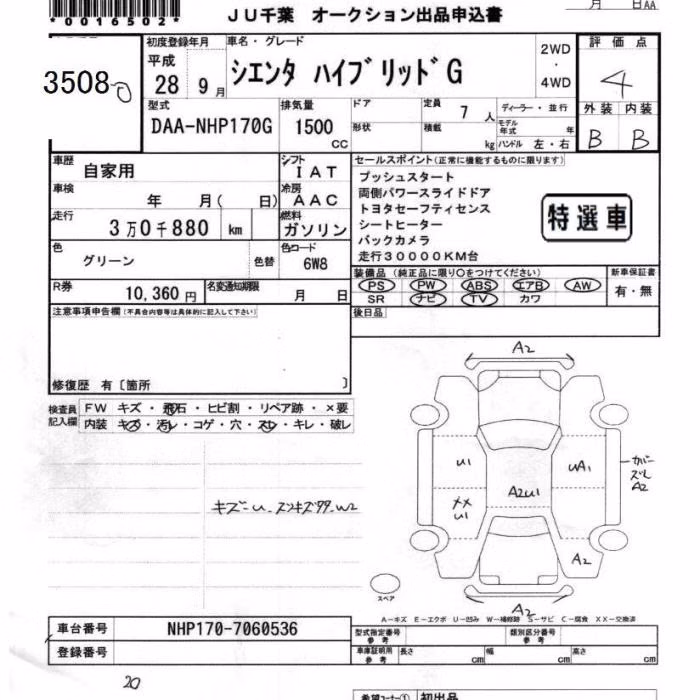 *0016502*
ＪＵ千葉　オークション出品申込書
月　日AA
3508
初度登録年月
車名・グレード
平成
28 9月
シエンタ ハイブリッドG
2WD
・
4WD
評価点
4
外装 内装
B B
型式
DAA-NHP170G
排気量
1500 CC
ドア
形状
定員
7 人
積載
kg
ディーラー・並行
モデル年式
年
ハンドル 左・右
車歴
自家用
シフト
IAT
車検
年 月( 日)
冷房
AAC
走行
3万0千880 km
燃料
ガソリン
色
グリーン
色替
色コード
6W8
R券
10,360円
名変通知期限
月 日
セールスポイント(正常に機能するものに限ります)
プッシュスタート
両側パワースライドドア
トヨタセーフティセンス
シートヒーター
バックカメラ
走行30000KM台
特選車
装備品 (純正品に限り○をつけてください)
PS PW ABS エアB AW
SR ナビ TV カワ
新車保証書
有・無
後日品
注意事項申告欄(不具合内容等は具体的に記入して下さい)
修復歴 有〔箇所 〕
検査員記入欄
FW キズ・飛石・ヒビ割・リペア跡・×要
内装 キズ・汚レ・コゲ・穴・スレ・キレ・破レ
A2
U1
UA1
カバー
ズレ
A2
XX
U1
A2U1
A2
A2
スペア
A－キズ E－エクボ U－凹み W－補修跡 S－サビ C－腐食 XX－交換済
車台番号
NHP170-7060536
登録番号
型式指定番号
参考
類別区分番号
参考
車庫証明用
参考
長さ cm
幅 cm
高さ cm
20
希望コーナー① 初出品